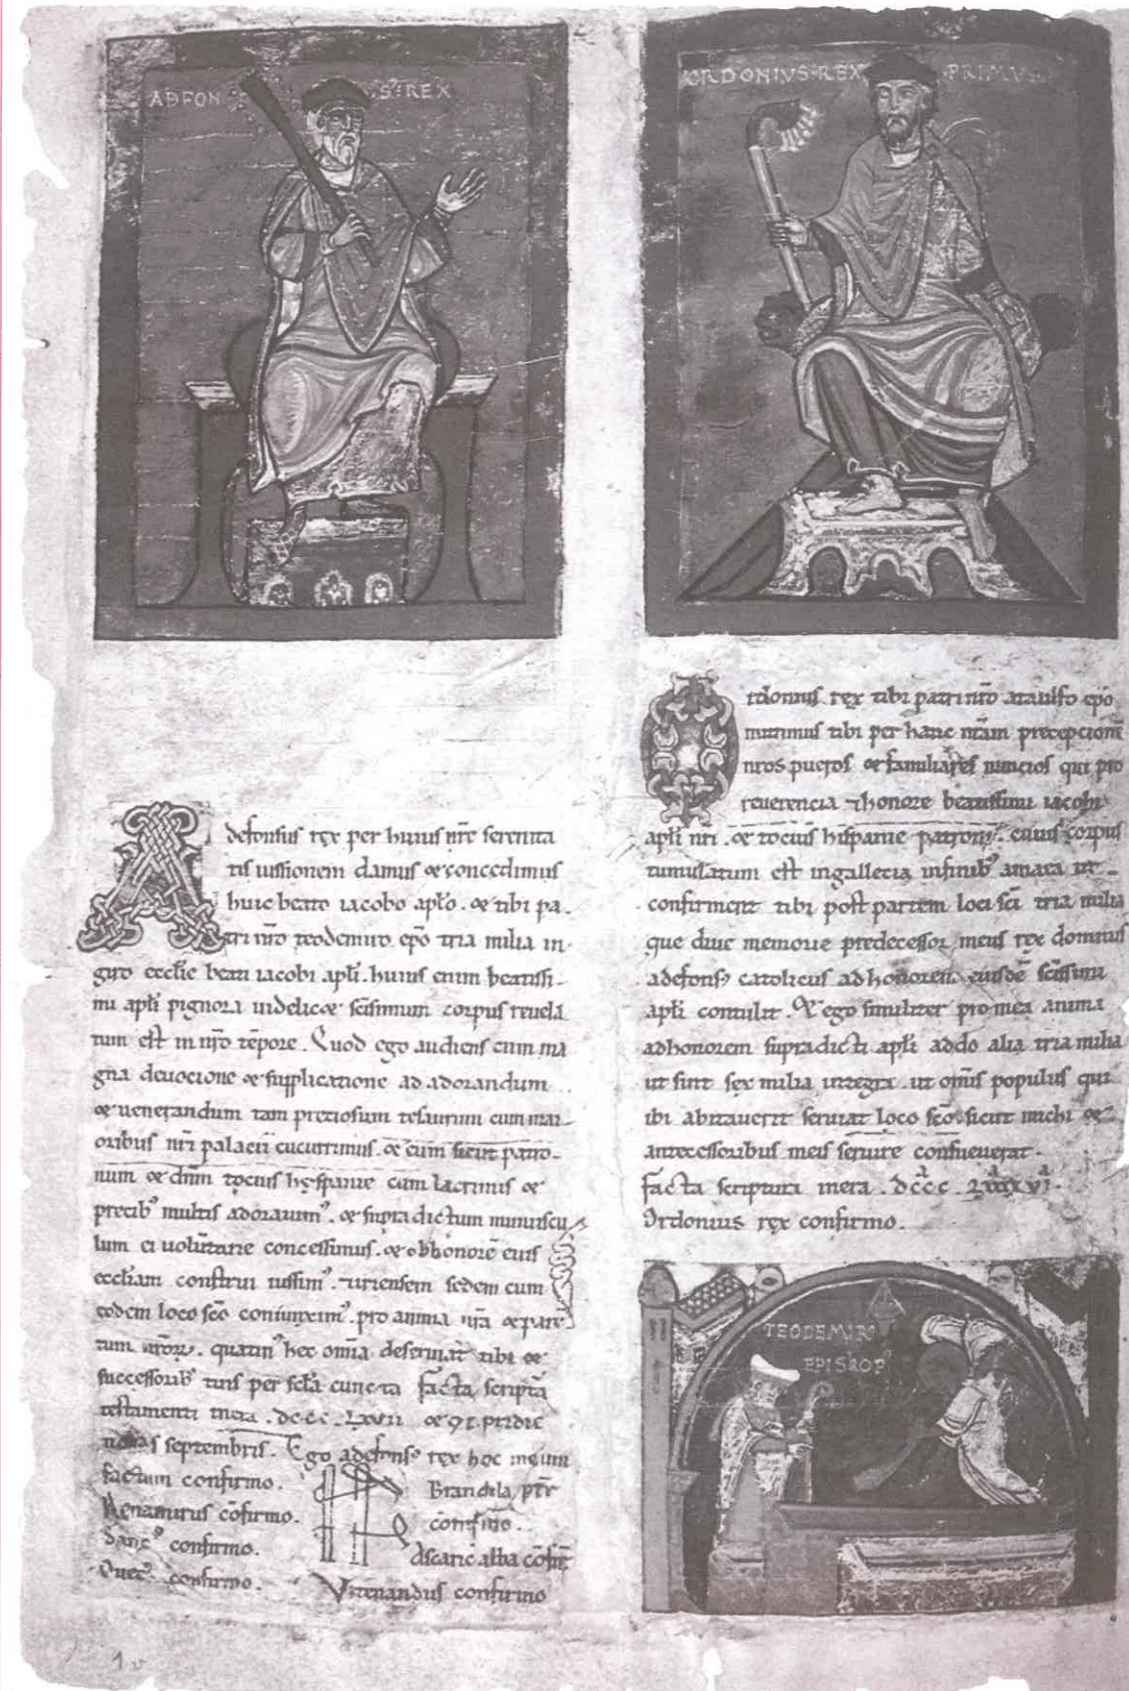 ADFON S·REX
Adefonsus rex per huius nr̄e serenita
tis iussionem damus & concedimus
huic beato iacobo aplō. & tibi pa
tri nr̄o teodemiro ep̄o tria milia in
giro eccl̄ie beati iacobi apl̄i. huius enim beatissi
mi apl̄i pignora videlic& sc̄issimum corpus reuela
tum est in nr̄o tēpore. Quod ego audiens cum ma
gna deuocione & supplicatione ad adorandum
& uenerandum tam preciosum tesaurum cum mai
oribus nr̄i palacii cucurrimus. & eum sicut patro
num & dn̄m tocius hyspanie cum lacrimis &
precib' multis adorauim'. & supradictum munuscu
lum ei uolūtarie concessimus. & ob honorē eius
eccl̄iam construi iussim'. iriensem sedem cum
eodem loco sc̄o coniunxim'. pro anima nr̄a & paren
tum nr̄or. quatin' hec omīa deseruiāt tibi &
successorib' tuis per sc̄la cuncta facta scriptā
testamenti in era. dccc. Lxvii & pridie
nonas septembris. Ego adefons' rex hoc meum
factum confirmo.
Brandila, pr̄
Renamirus cōfirmo.
confirmo.
Sanc' confirmo.
Ascaric abba cōfir
confirmo.
Vitenandus confirmo
1v
ORDONIVS·REX PRIMVS
Ordonius rex tibi patri nr̄o ataulfo ep̄o
mittimus tibi per hanc nr̄am precepcionē
nros pueros & familiares nuncios qui pro
reuerencia & honore beatissimi iacobi
apl̄i nr̄i. & tocius hispanie patroni. cuius corpus
tumulatum est in gallecia in finib' amaea ut
confirment tibi post partem loci sc̄i tria milia
que diue memorie predecessor meus rex domnus
adefons' catolicus ad honorem eiusdē sc̄issimi
apl̄i contulit. & ego similiter pro mea anima
ad honorem supradicti apl̄i addo alia tria milia
ut sint sex milia integra. ut om̄is populus qui
ibi abitauerit seruiat loco sc̄o sicut michi &
antecessoribus meis seruire consueuerat.
facta scriptura in era. dccc. Lxxxxvi.
Ordonius rex confirmo.
TEODEMIR'
EPISKOP'